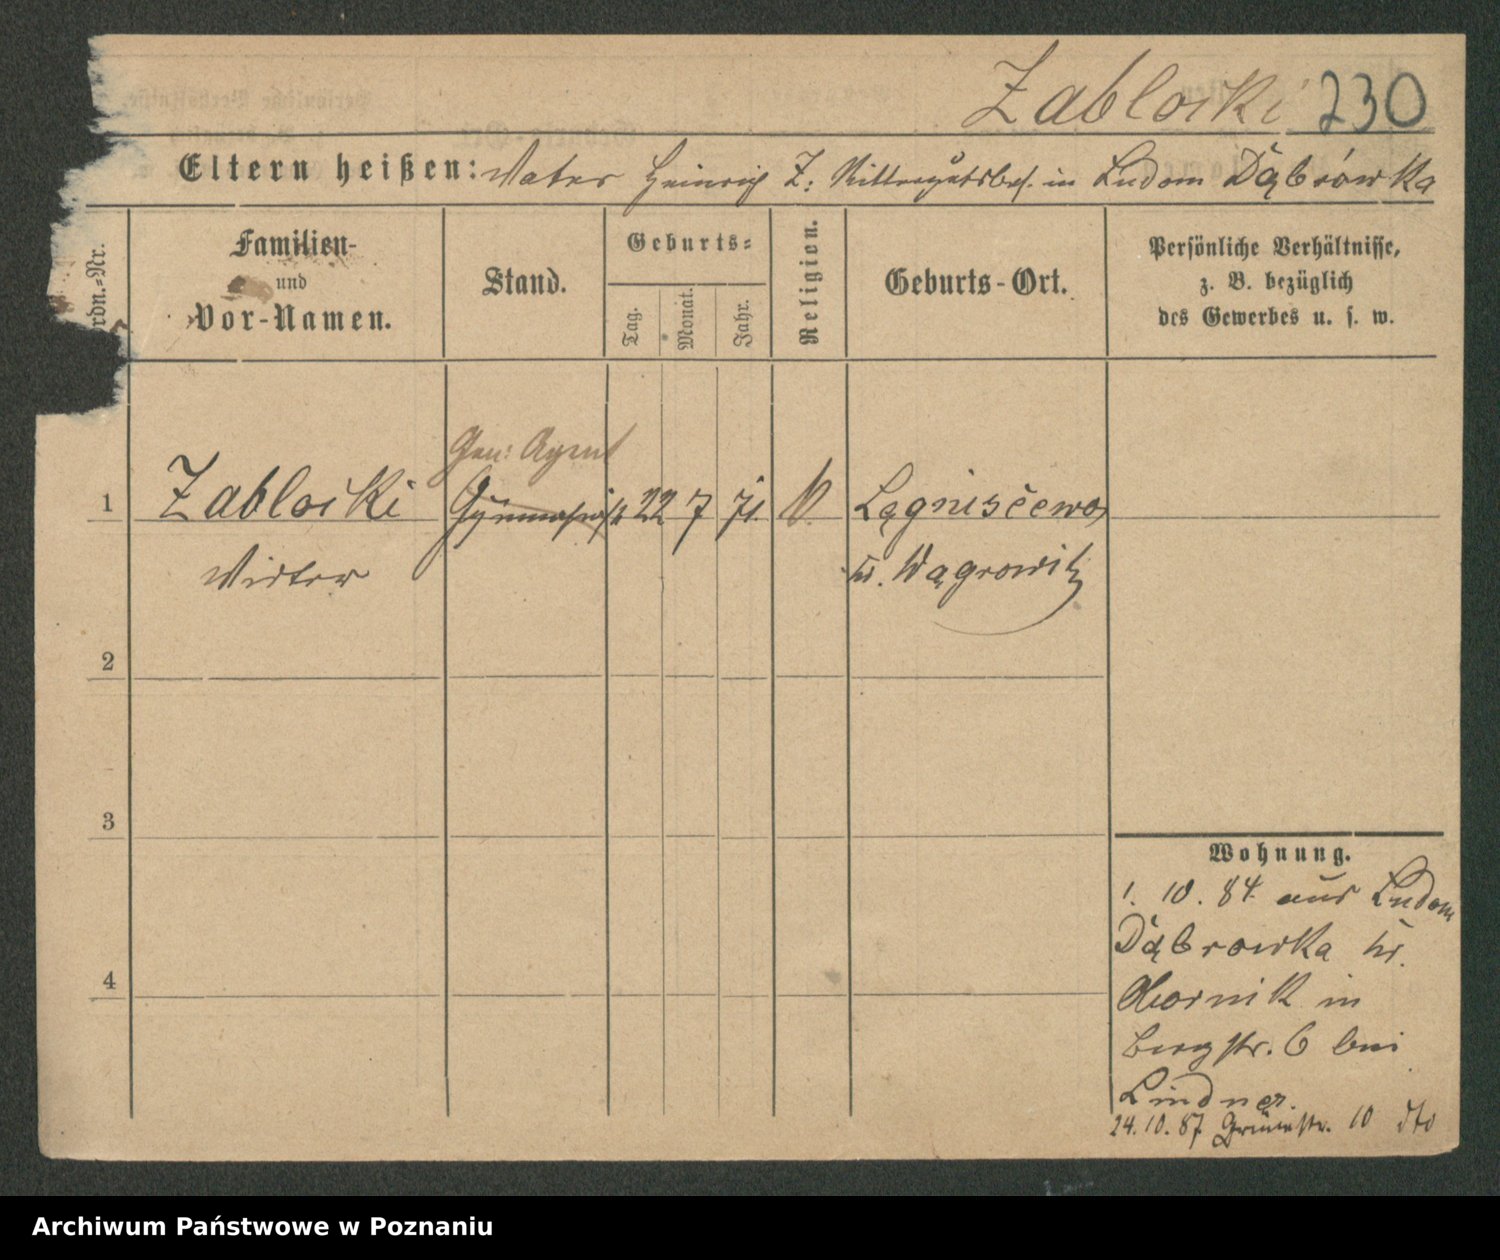 Zabłocki 230
Eltern heißen: Vater Heinrich Z: Rittergutsbes. in Ludom Dąbrówka
Ordn.-Nr.
Familien-
und
Vor-Namen.
Stand.
Geburts-
Tag.
Monat.
Jahr.
Religion.
Geburts-Ort.
Persönliche Verhältnisse,
z. B. bezüglich
des Gewerbes u. s. w.
Gen: Agent
1 Zabłocki 22 7 71.
Kr. Wągrowitz
2
3
4
Wohnung.
1. 10. 84. aus Ludom
Dąbrowka Kr.
Obornik in
Bergstr. 6 bei
Lindner.
24.10.87 Grünestr. 10 dto
Archiwum Państwowe w Poznaniu